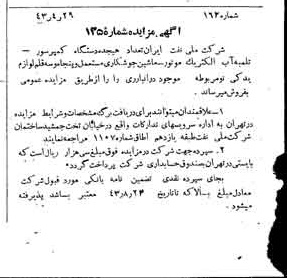 شماره ۱۹۳ ۴۳/۴/۲۹
آگهی مزایده شماره ۱۳۵
شرکت ملی نفت ایران تعداد هیجده دستگاه کمپرسور -
تلمبه آب الکتریك موتور - ماشین جوشکاری مستعمل و پنجاه و سه قلم لوازم
یدکی نو مربوطه موجود در انبار ری را از طریق مزایده عمومی
بفروش میرساند.
۱- علاقمندان میتوانند برای دریافت برگ مشخصات و شرایط مزایده
در تهران به اداره سرویسهای تدارکات واقع در خیابان تخت جمشید ساختمان
شرکت ملی نفت طبقه یازدهم اطاق شماره ۱۱۰۷ مراجعه نمایند
۲- سپرده جهت شرکت در مزایده فوق مبلغ سی هزار ریال است که
بایستی در تهران بصندوق حسابداری شرکت پرداخت گردد
بجای سپرده نقدی تضمین نامه بانکی مورد قبول شرکت
معادل مبلغ بالا که تا تاریخ ۴۳/۸/۲۴ معتبر باشد پذیرفته
میشود.